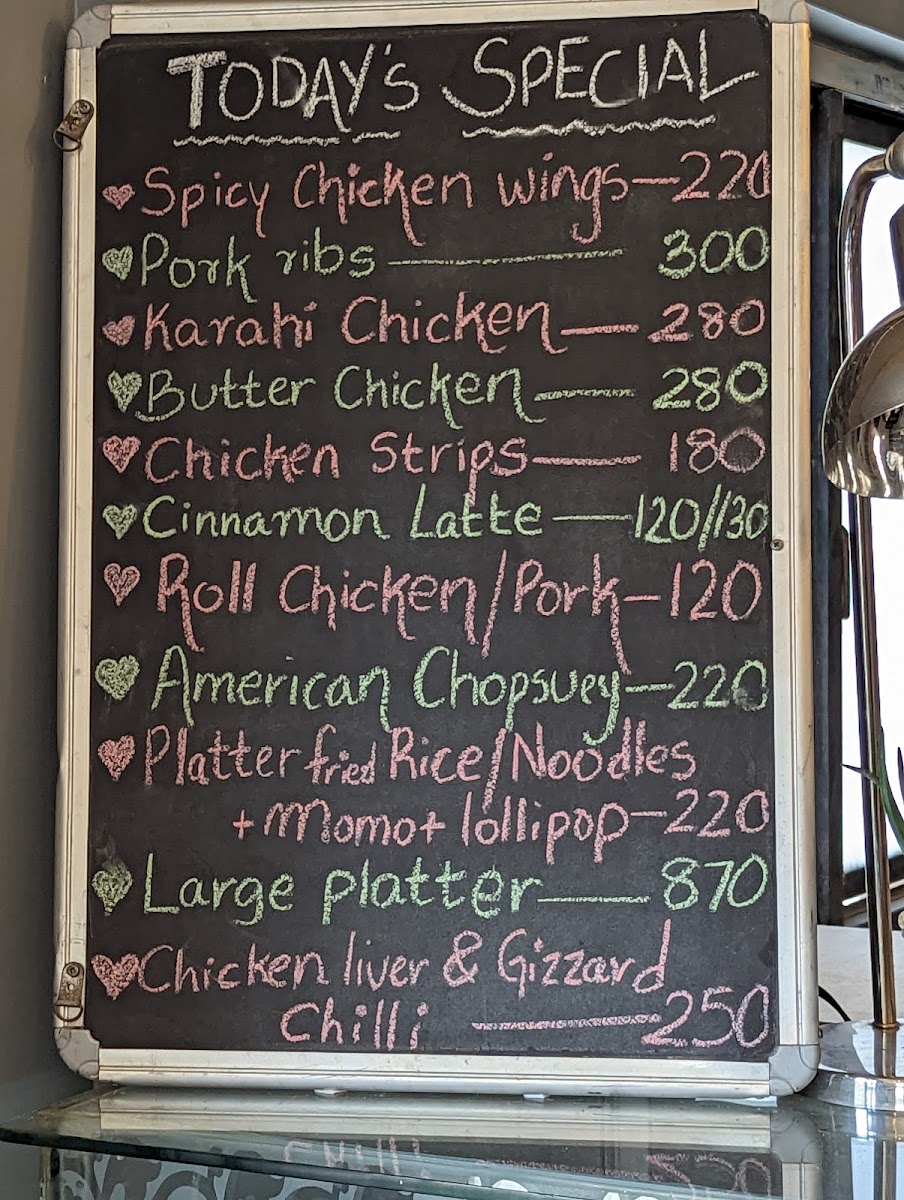 TODAY'S SPECIAL
Spicy Chicken wings—220
Pork ribs — 300
Karahi Chicken — 280
Butter Chicken — 280
Chicken Strips — 180
Cinnamon Latte — 120//130
Roll Chicken/Pork—120
American Chopsuey—220
Platter fried Rice/Noodles
+ momo + lollipop—220
Large platter — 870
Chicken liver & Gizzard
Chilli — 250